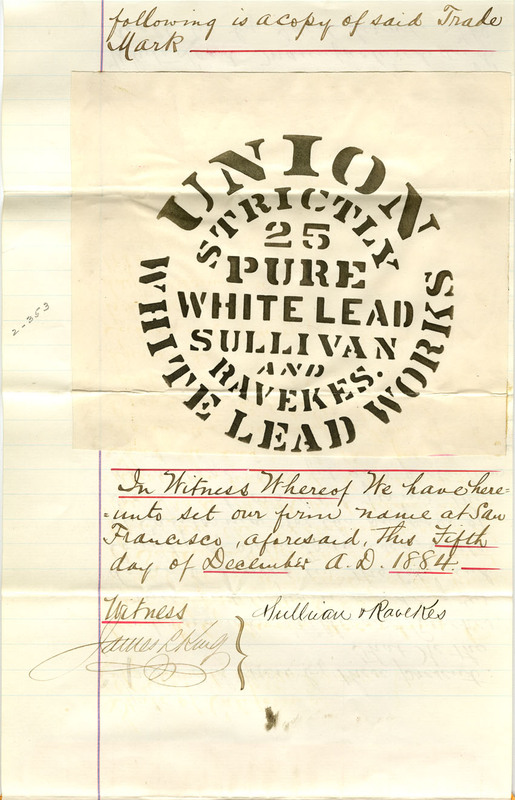 following is a copy of said Trade
Mark
UNION
STRICTLY
25
PURE
WHITE LEAD
SULLIVAN
AND
RAVEKES.
WHITE LEAD WORKS
2-353
In Witness Whereof We have here=
=unto set our firm name at San
Francisco, aforesaid, this Fifth
day of December A.D. 1884.
Witness
Sullivan & Ravekes
James R. King